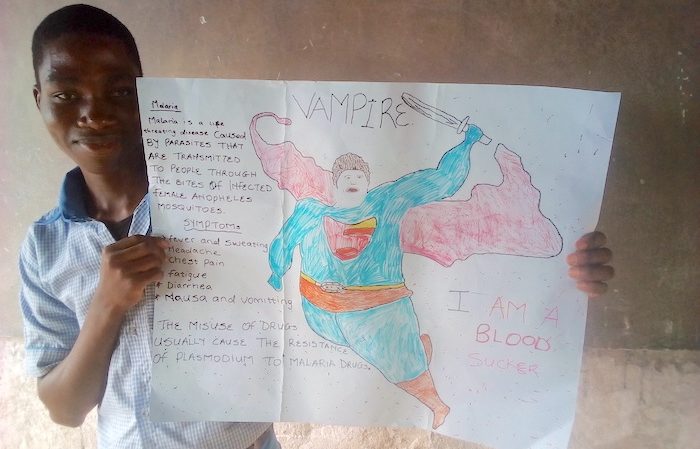 Malaria
Malaria is a life
threating disease caused
BY PARASITES THAT
ARE TRANSMITTED
TO PEOPLE THROUGH
THE BITES OF INFECTED
FEMALE ANOPHELES
MOSQUITOES.
SYMPTOMS
fever and sweating
Headache
Chest pain
fatigue
Diarrhea
Nausa and vomitting
THE MISUSE OF DRUGS
USUALLY CAUSE THE RESISTANCE
OF PLASMODIUM TO MALARIA DRUGS.
VAMPIRE
I AM A
BLOOD
SUCKER